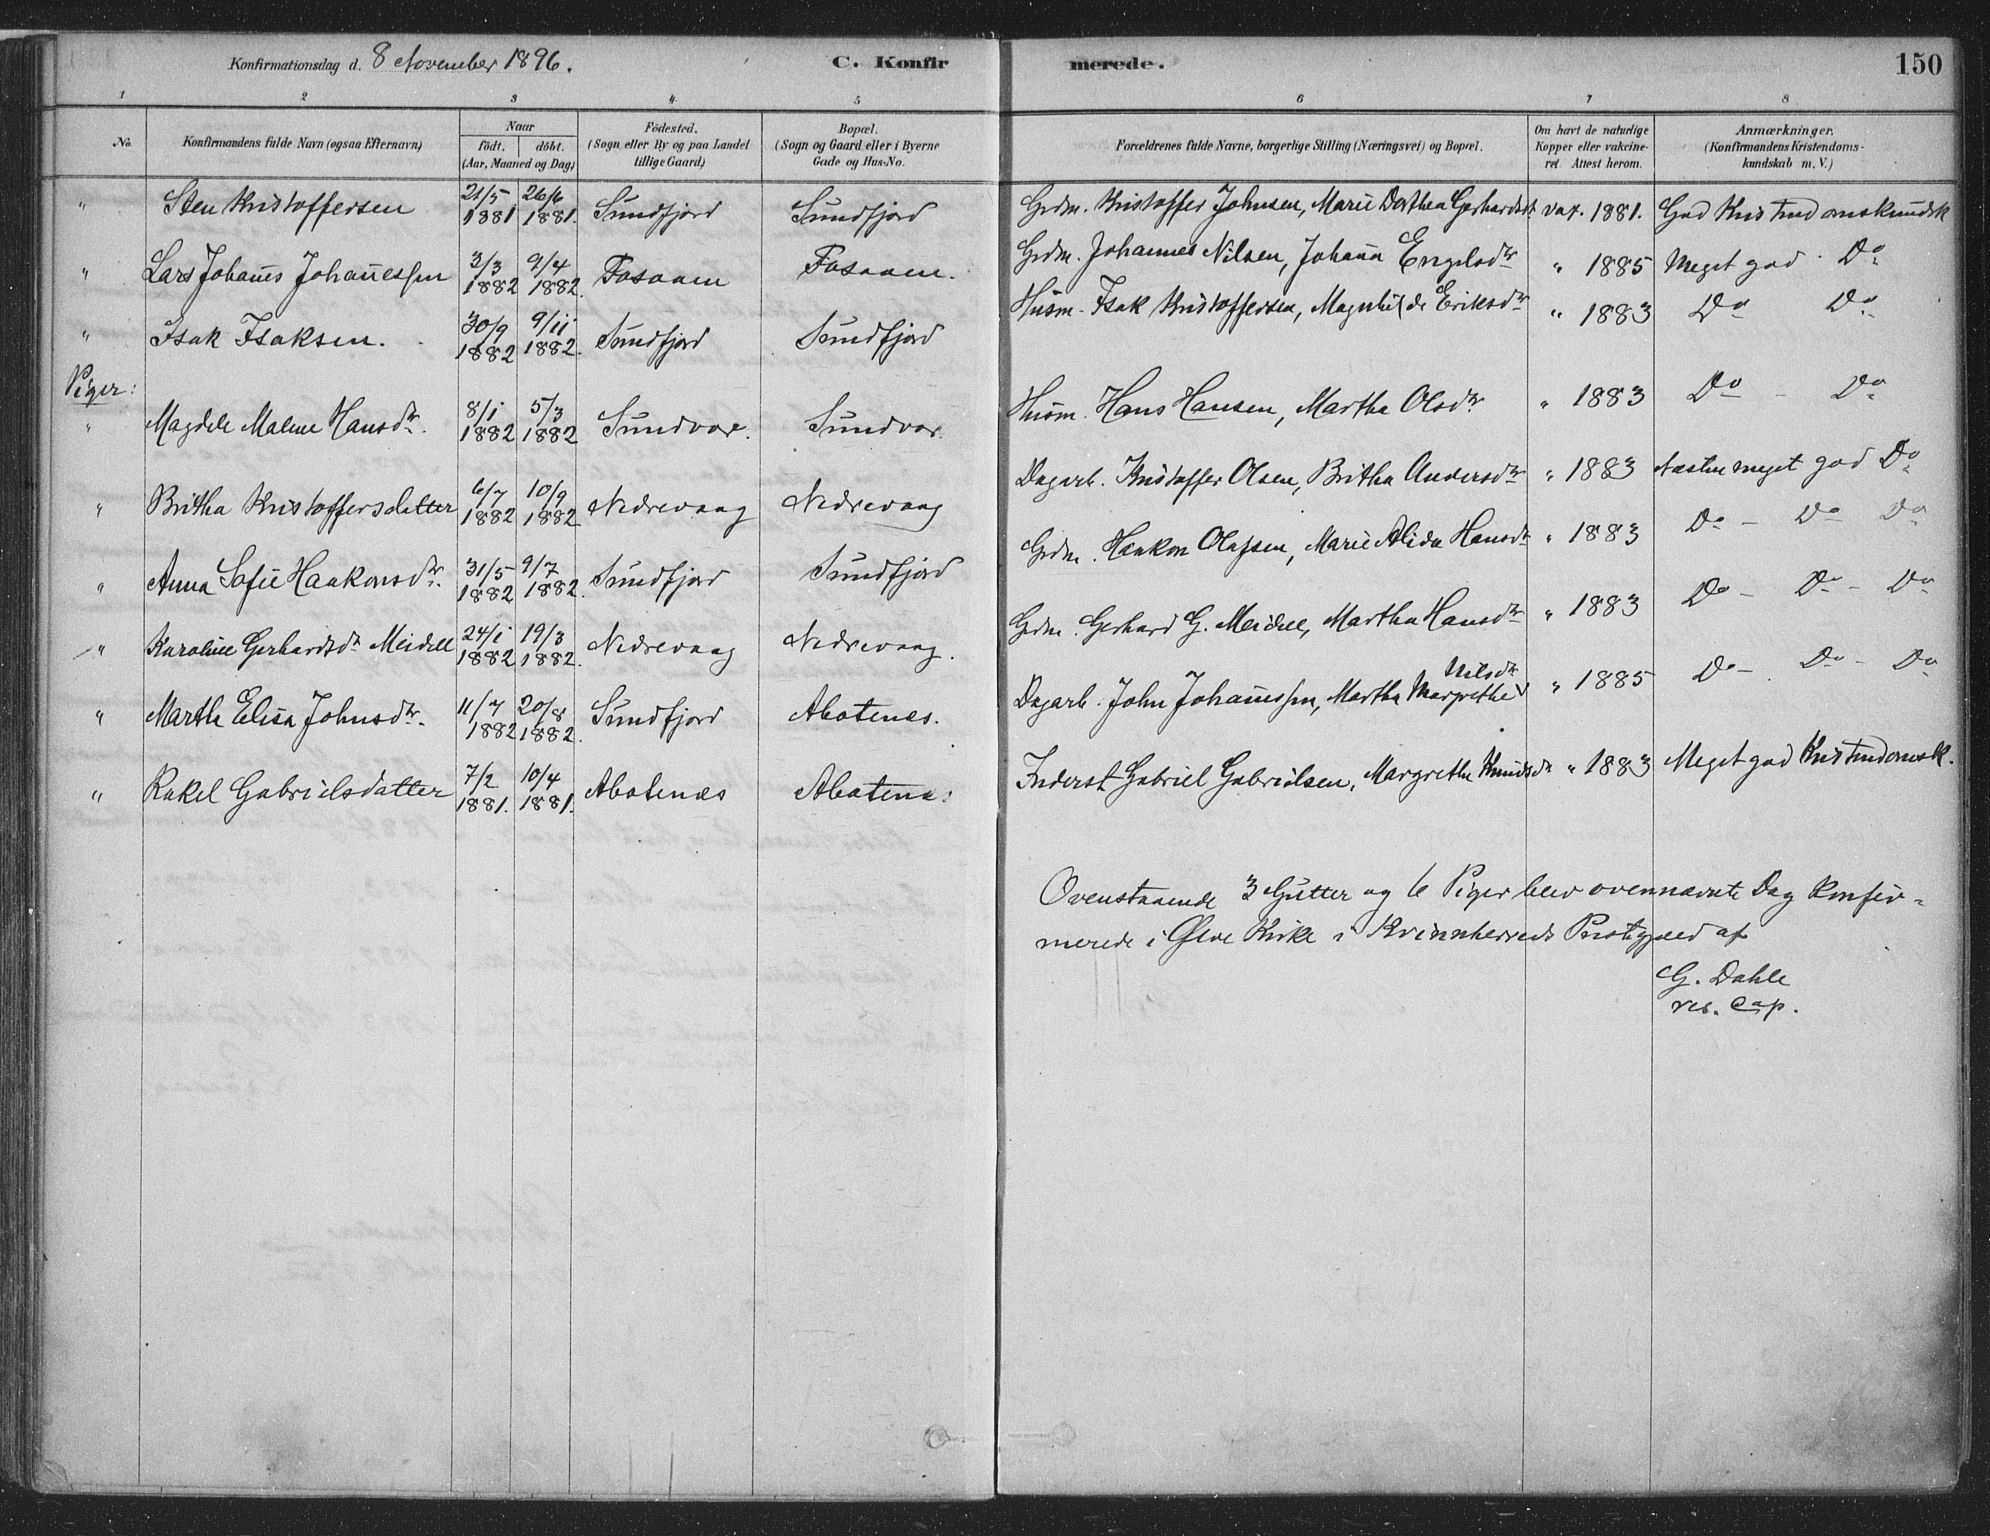 Konfirmationsdag d. 8 November 1896. C. Konfir merede. 150
1 2 3 4 5 6 7 8
No. Konfirmandens fulde Navn (ogsaa Efternavn) Naar födt. döbt. (Aar, Maaned og Dag) Födested. (Sogn eller By og paa Landet tillige Gaard) Bopæl. (Sogn og Gaard eller i Byerne Gade og Hus-No. Forældrenes fulde Navne, borgerlige Stilling (Næringsvei) og Bopæl. Om havt de naturlige Kopper eller vakcineret. Attest herom. Anmærkninger. (Konfirmandens Kristendomskundskab m. V.)
" Sten Kristoffersen 21/5 1881 26/6 1881. Sundfjord Sundfjord Grdm. Kristoffer Johnsen, Marie Dorthea Gerhardsd. vax. 1881. God Kristendomskundsk
" Lars Johañes Johañessen 3/3 1882 9/4 1882. Fosaaen Fosaaen. Grdm. Johannes Nilsen, Johaña Engelsdtr " 1885 Meget god Do
" Isak Isaksen. 30/9 1882 9/11 1882. Sundfjord Sundfjord Husm. Isak Kristoffersen, Magnhilde Eriksdtr " 1883 Do Do
Piger:
" Magdele Malene Hansdtr. 8/1 1882 5/3 1882 Sundvor. Sundvor. Husm. Hans Hansen, Martha Olsdtr " 1883 Do - Do
" Britha Kristoffersdatter 6/7 1882 10/9 1882 Nedrevaag Nedrevaag Dagarb. Kristoffer Olsen, Britha Andersdtr " 1883 Næsten meget god Do
" Anna Sofie Haakonsdtr. 31/5 1882 9/7 1882. Sundfjord Sundfjord Grdm. Haakon Olafsen, Marie Alida Hansdtr " 1883 Do - Do Do
" Karoline Gerhardsdtr Meidell 24/1 1882 19/3 1882. Nedrevaag Nedrevaag. Grdm. Gerhard G. Meidell, Martha Hansdtr " 1883 Do - Do - Do
" Martha Elisa Johnsdtr. 11/7 1882 20/8 1882. Sundfjord Abotenes. Dagarb. John Johañessen, Martha Margrethe Nilsdtr " 1885 Do - Do - Do
" Rakel Gabrielsdatter 7/2 1881. 10/4 1881. Abotenes Abotenes Inderst Gabriel Gabrielsen, Margrethe Knudsdtr " 1883 Meget god Kristendomsk.
Ovenstaaende 3 Gutter og 6 Piger blev ovennævnte Dag konfir-
merede i Ølve Kirke i Kvinnherreds Prestegjæld af
G. Dahle
res. Cap.